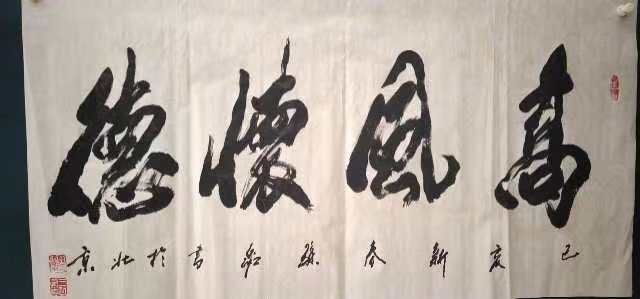 高風懷德
己亥新春孫
書於北京